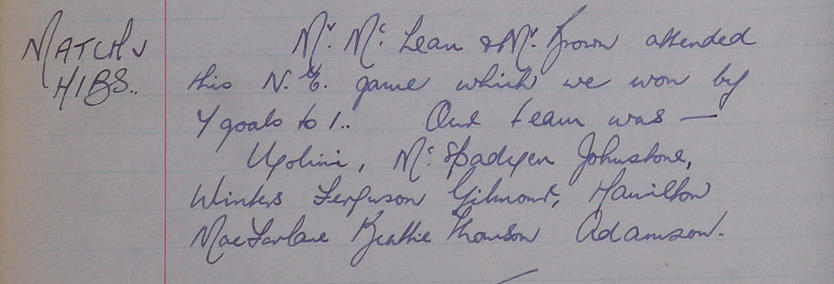 MATCH v
HIBS..
Mr. Mc Lean & Mr. Brown attended
this N. E. game which we won by
4 goals to 1.. Our team was —
Ugolini, Mc Spadyen Johnstone,
Winters Ferguson Gilmour, Hamilton
MacFarlane Beattie Thomson Adamson.